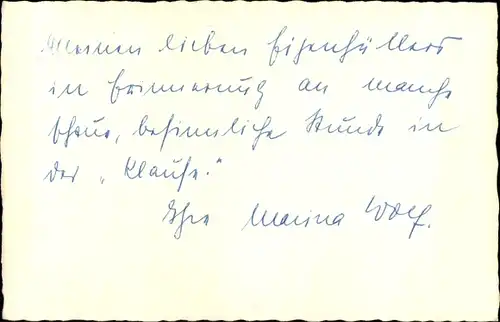 Meinen lieben Eigenhüllers
in Erinnerung an manche
schöne, besinnliche Stunde in
der „Klause."
Ihre Marina Wolf.